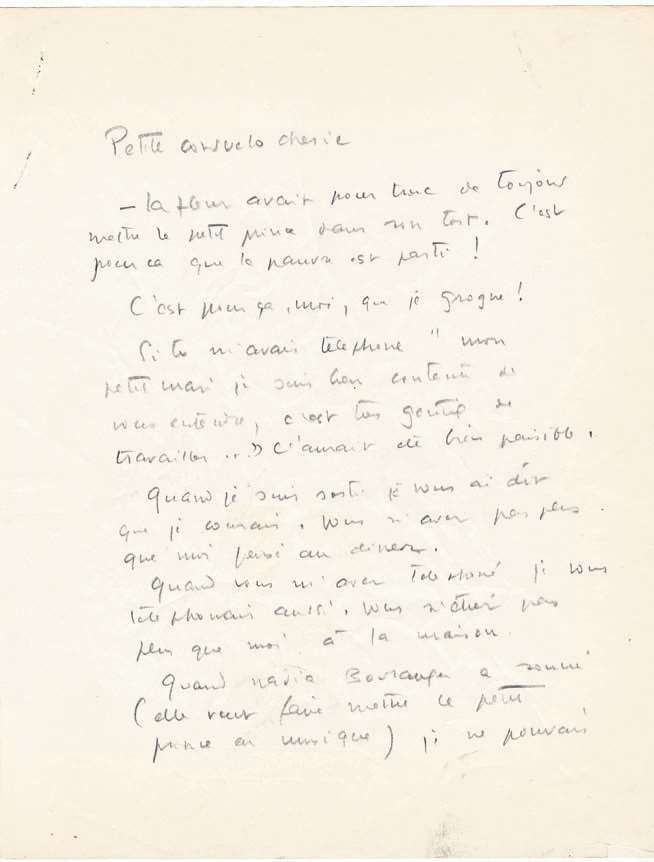 Petite consuelo cherie
— la fleur avait pour truc de toujours
mettre le petit prince dans son tort. C'est
pour ca que le pauvre est parti !
C'est pour ça, moi, que je grogne !
Si tu m'avais téléphoné " mon
petit mari je suis bien contente de
vous entendre, c'est très gentil de
travailler ..." C'aurait été bien paisible.
Quand je suis sorti je vous ai dit
que je courais. Vous n'avez pas plus
que moi pensé au diner.
Quand vous m'avez telephoné je vous
téléphonais aussi. Vous n'étiez pas
plus que moi à la maison.
Quand nadia Boulanger a sonné
(elle veut faire mettre le petit
prince en musique) je ne pouvais